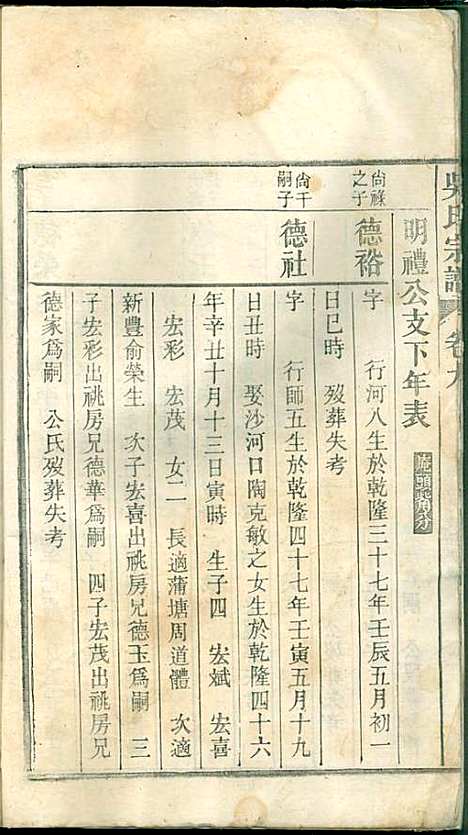 吳氏宗譜 卷九
明禮公支下年表
尙祿之子
德裕
字 行河八生於乾隆三十七年壬辰五月初一
日巳時 歿葬失考
尙千嗣子
德社
字 行師五生於乾隆四十七年壬寅五月十九
日丑時 娶沙河口陶克敏之女生於乾隆四十六
年辛丑十月十三日寅時 生子四 宏斌 宏喜
宏彩 宏茂 女二 長適蒲塘周道體 次適
新豐俞榮生 次子宏喜出祧房兄德玉爲嗣 三
子宏彩出祧房兄德華爲嗣 四子宏茂出祧房兄
德家爲嗣 公氏歿葬失考